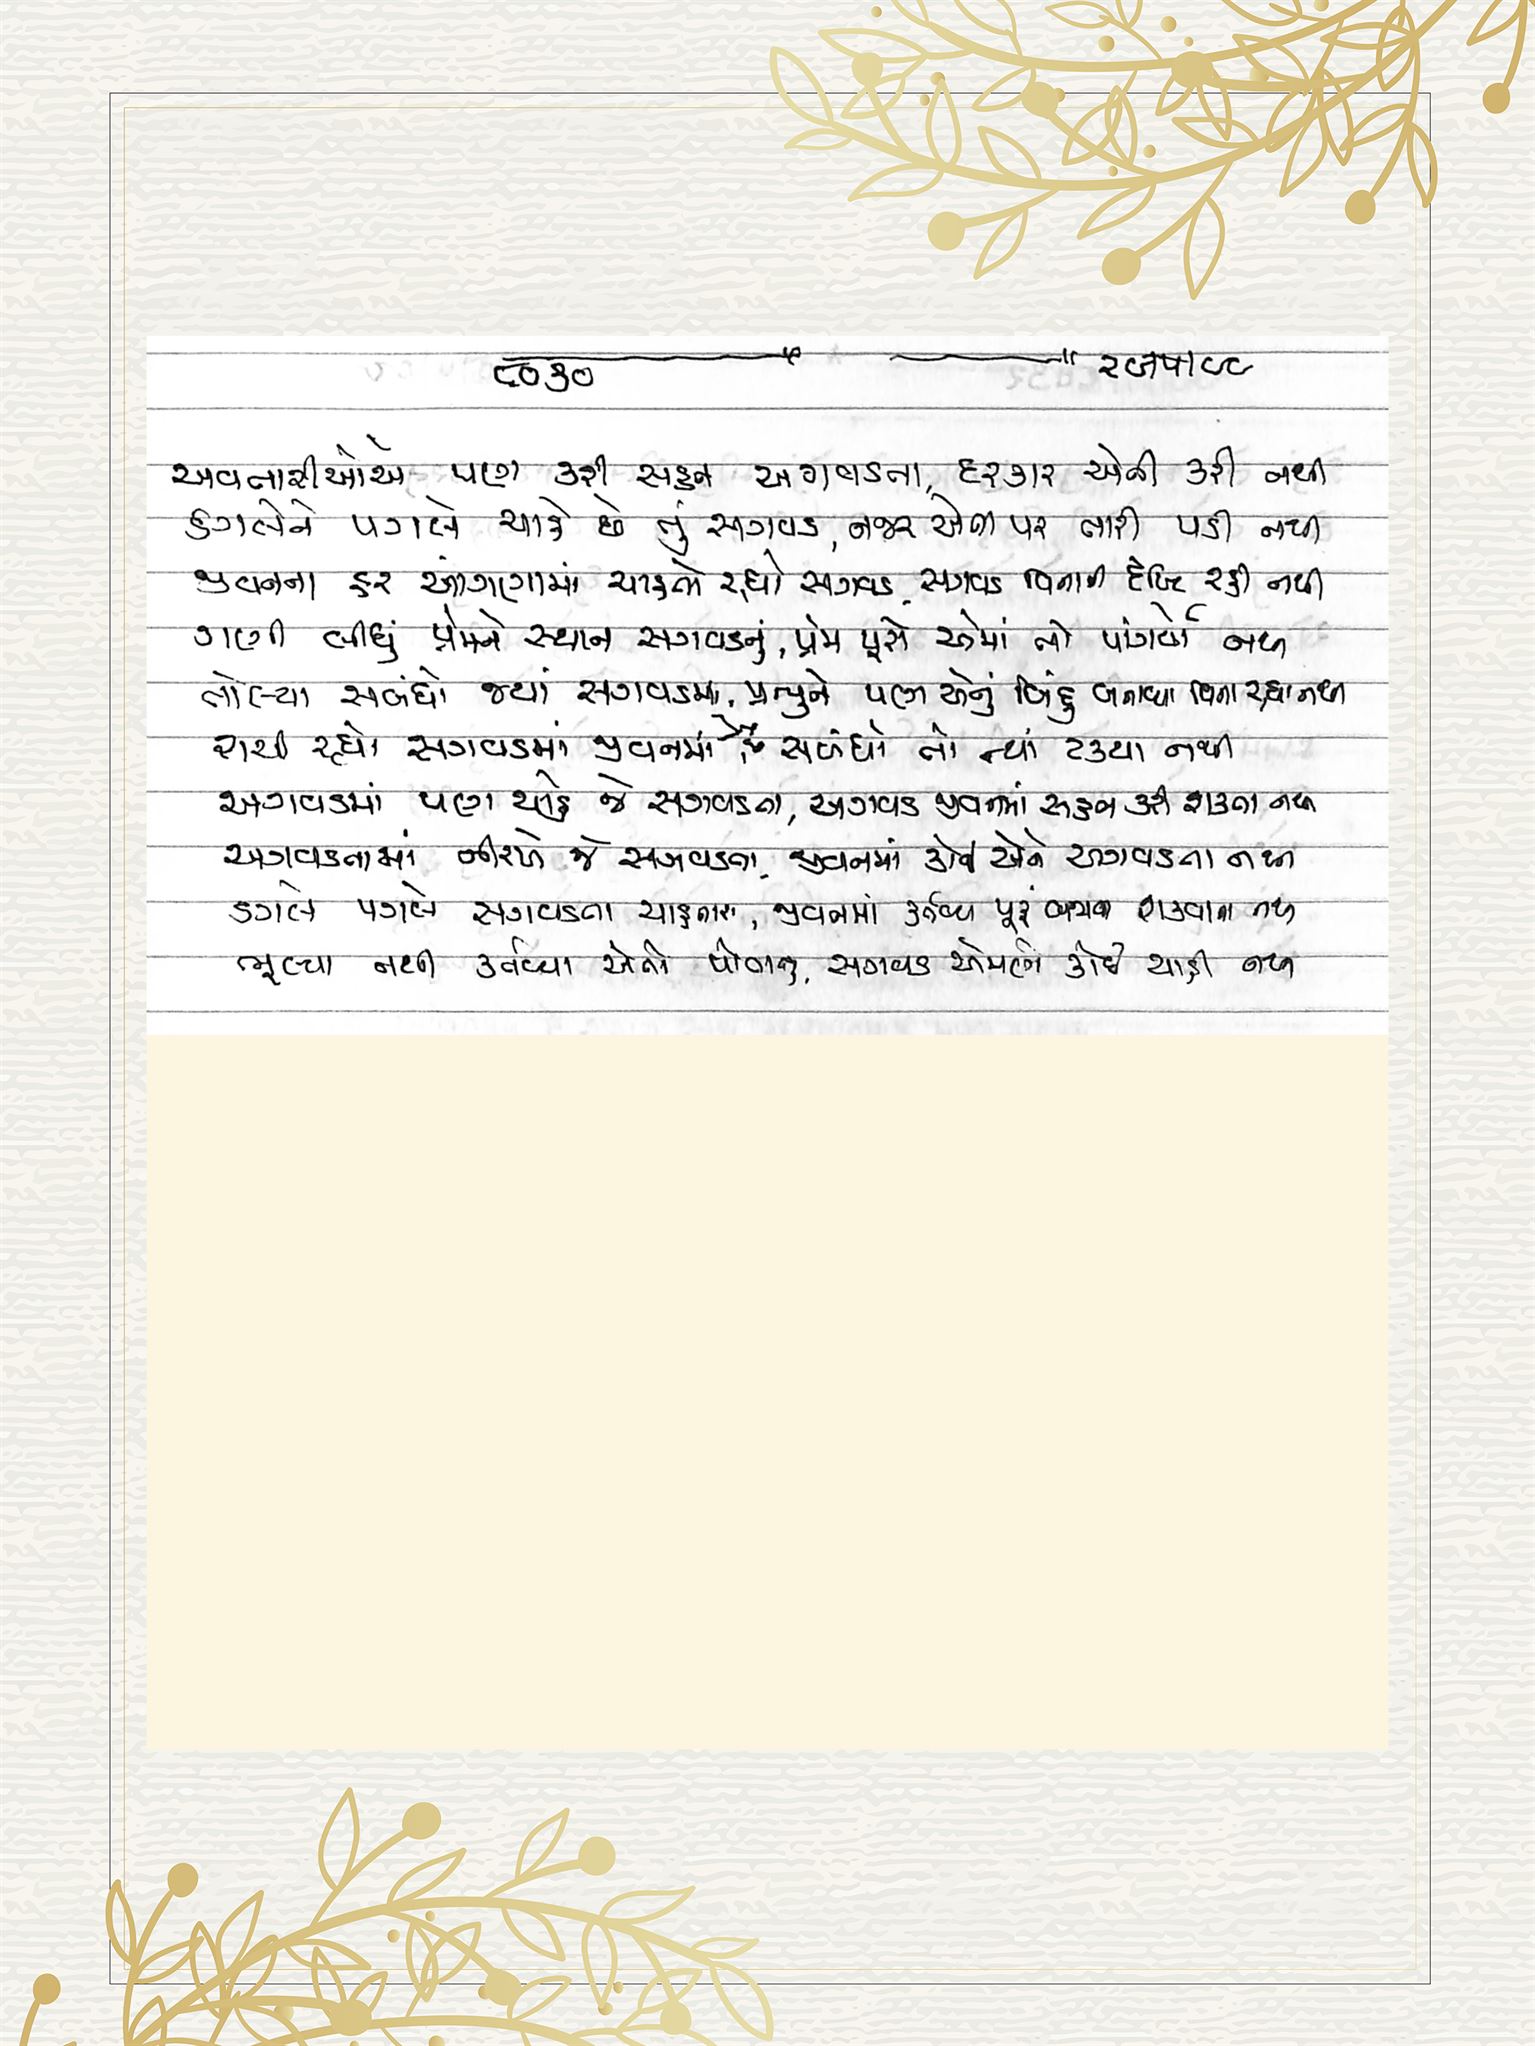 ૮૦૩૦
અવતારીઓએ પણ કરી સહન અગવડતા, દરકાર એની કરી નથી
ડગલેને પગલે ચાહે છે તું સગવડ, નજર એના પર તારી પડી નથી
જીવનના હર આંગણામાં ચાહતો રહ્યો સગવડ, સગવડ વિનાની દૃષ્ટિ રહી નથી
ગણી લીધું પ્રેમને સ્થાન સગવડનું, પ્રેમ પૂરો એમાં તો પાંગર્યો નથી
તોલ્યા સબંધો જ્યાં સગવડમાં, પ્રભુને પણ એનું બિંદુ બનાવ્યા વિના રહ્યા નથી
રાચી રહ્યો સગવડમાં જીવનમાં જે સબંધો તો ત્યાં ટક્યા નથી
અગવડમાં પણ ચાહે જે સગવડતા, અગવડ જીવનમાં સહન કરી શકતા નથી
અગવડતામાં નીરખે જે સગવડતા, જીવનમાં કોઈ એને અગવડતા નથી
ડગલે પગલે સગવડતા ચાહનારા, જીવનમાં કર્તવ્ય પૂરું બજાવી શકવાના નથી
ભૂલ્યા નથી કર્તવ્યો એતો પોતાનું, સગવડ એમણે કોઈ ચાહી નથી